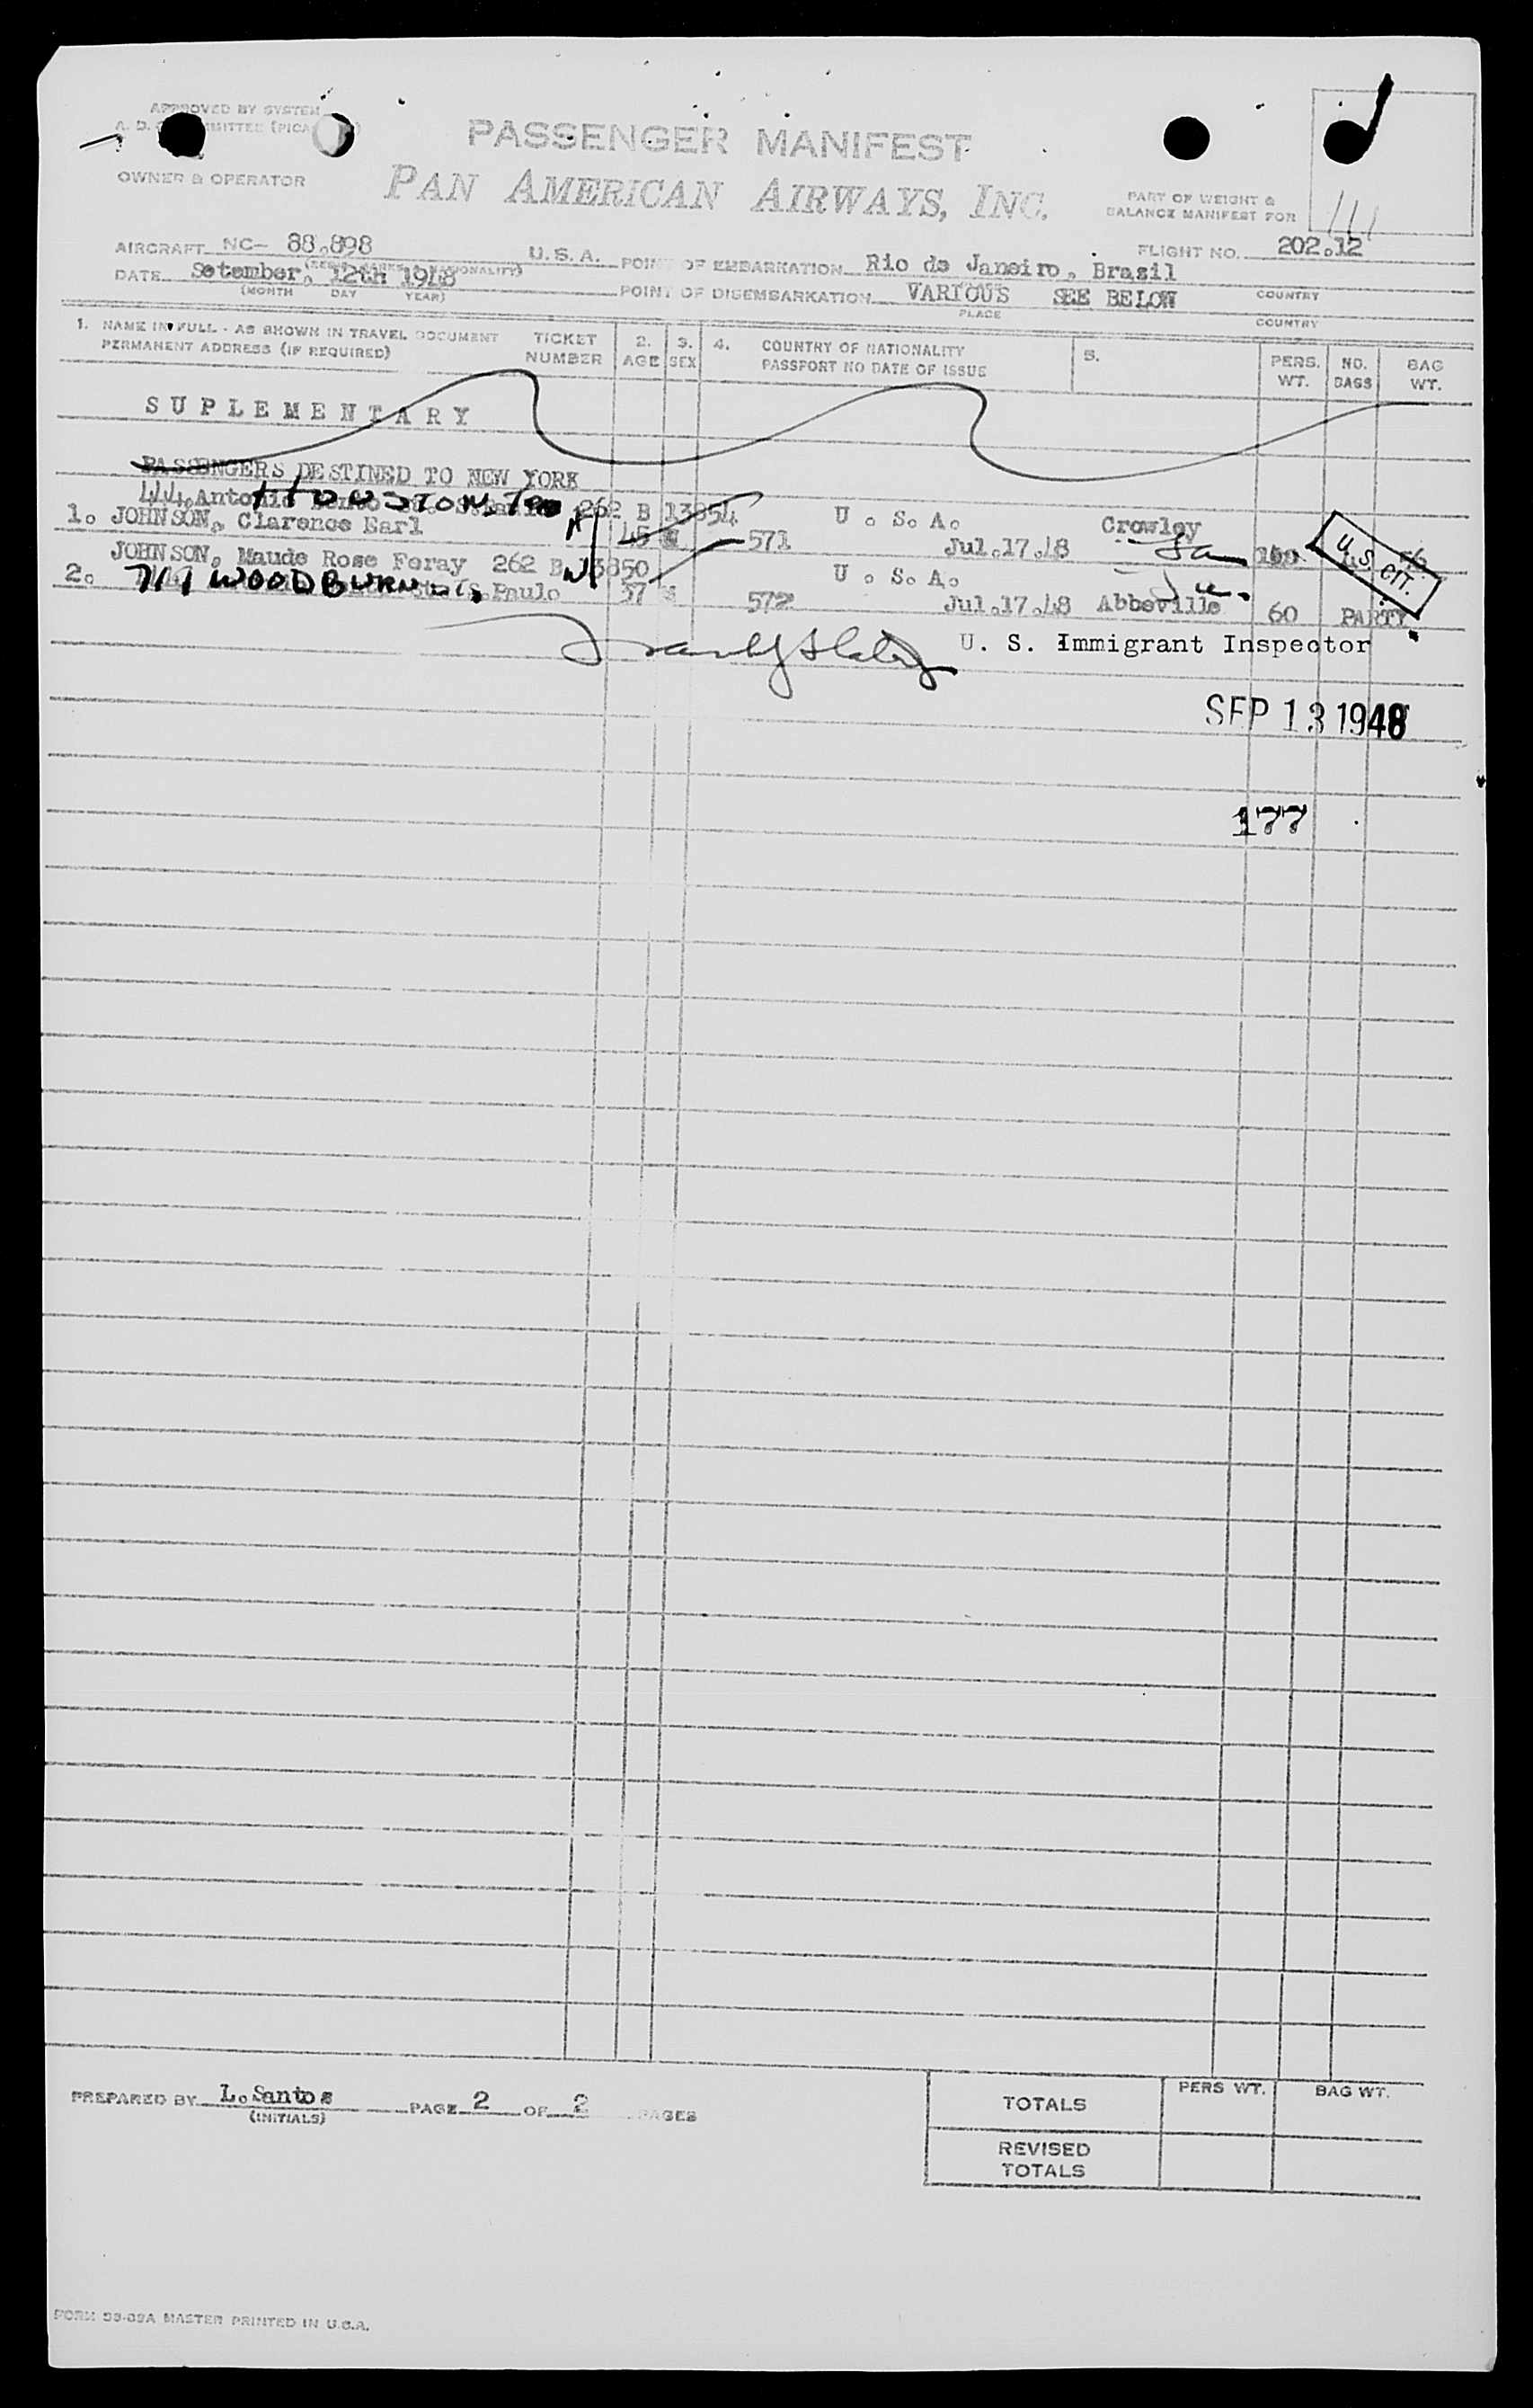 APPROVED BY SYSTEM
PASSENGER MANIFEST
OWNER & OPERATOR
PAN AMERICAN AIRWAYS, INC.
PART OF WEIGHT &
BALANCE MANIFEST FOR
AIRCRAFT NC- 88.898 U.S.A.
FLIGHT NO. 202.12
POINT OF EMBARKATION Rio de Janeiro, Brasil
DATE Setember, 12th 1948
(MONTH DAY YEAR)
POINT OF DISEMBARKATION VARIOUS SEE BELOW
PLACE COUNTRY
COUNTRY
1. NAME IN FULL - AS SHOWN IN TRAVEL DOCUMENT
PERMANENT ADDRESS (IF REQUIRED)
TICKET NUMBER
2. AGE
3. SEX
4. COUNTRY OF NATIONALITY
PASSPORT NO DATE OF ISSUE
5.
PERS. WT.
NO. BAGS
BAG WT.
SUPLEMENTARY
PASSENGERS DESTINED TO NEW YORK
Antonio 262 B 13854 U.S.A. Crowley
HOUSTON,
1. JOHNSON, Clarence Earl 45 571 Jul.17.48
U.S. CIT.
JOHNSON, Maude Rose Feray 262 B 13850 U.S.A.
2. 717 WOODBURN S.Paulo 37 572 Jul.17.48 Abbeville 60 PARTY
U. S. Immigrant Inspector
SEP 13 1948
177
PREPARED BY L.Santos PAGE 2 OF 2 PAGES
(INITIALS)
TOTALS
PERS WT.
BAG WT.
REVISED
TOTALS
FORM 98-09A MASTER PRINTED IN U.S.A.